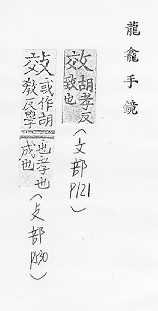 龍龕手鏡
效胡孝反致也（文部P121）
或作胡教反學也孝也成也（支部P130）